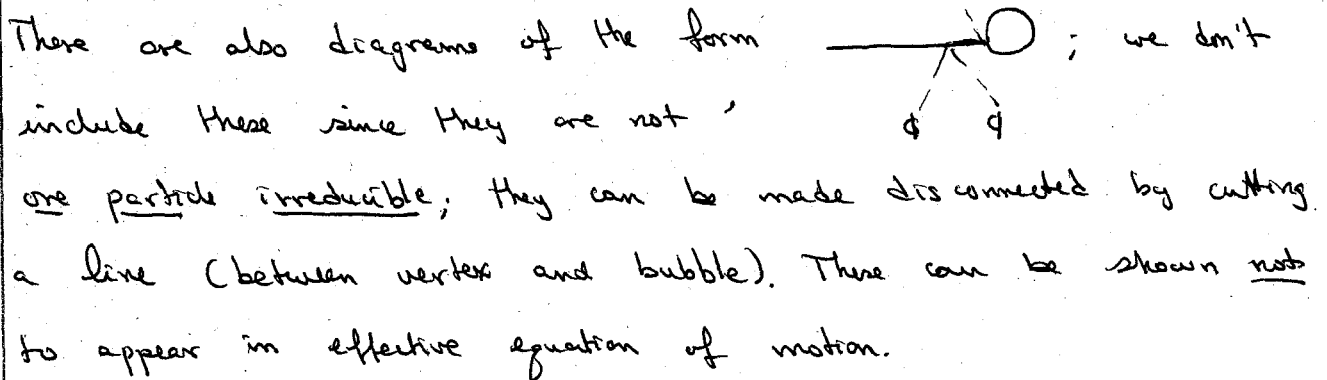 There are also diagrams of the form ; we don't
include these since they are not
φ φ
one particle irreducible; they can be made disconnected by cutting
a line (between vertex and bubble). These can be shown not
to appear in effective equation of motion.